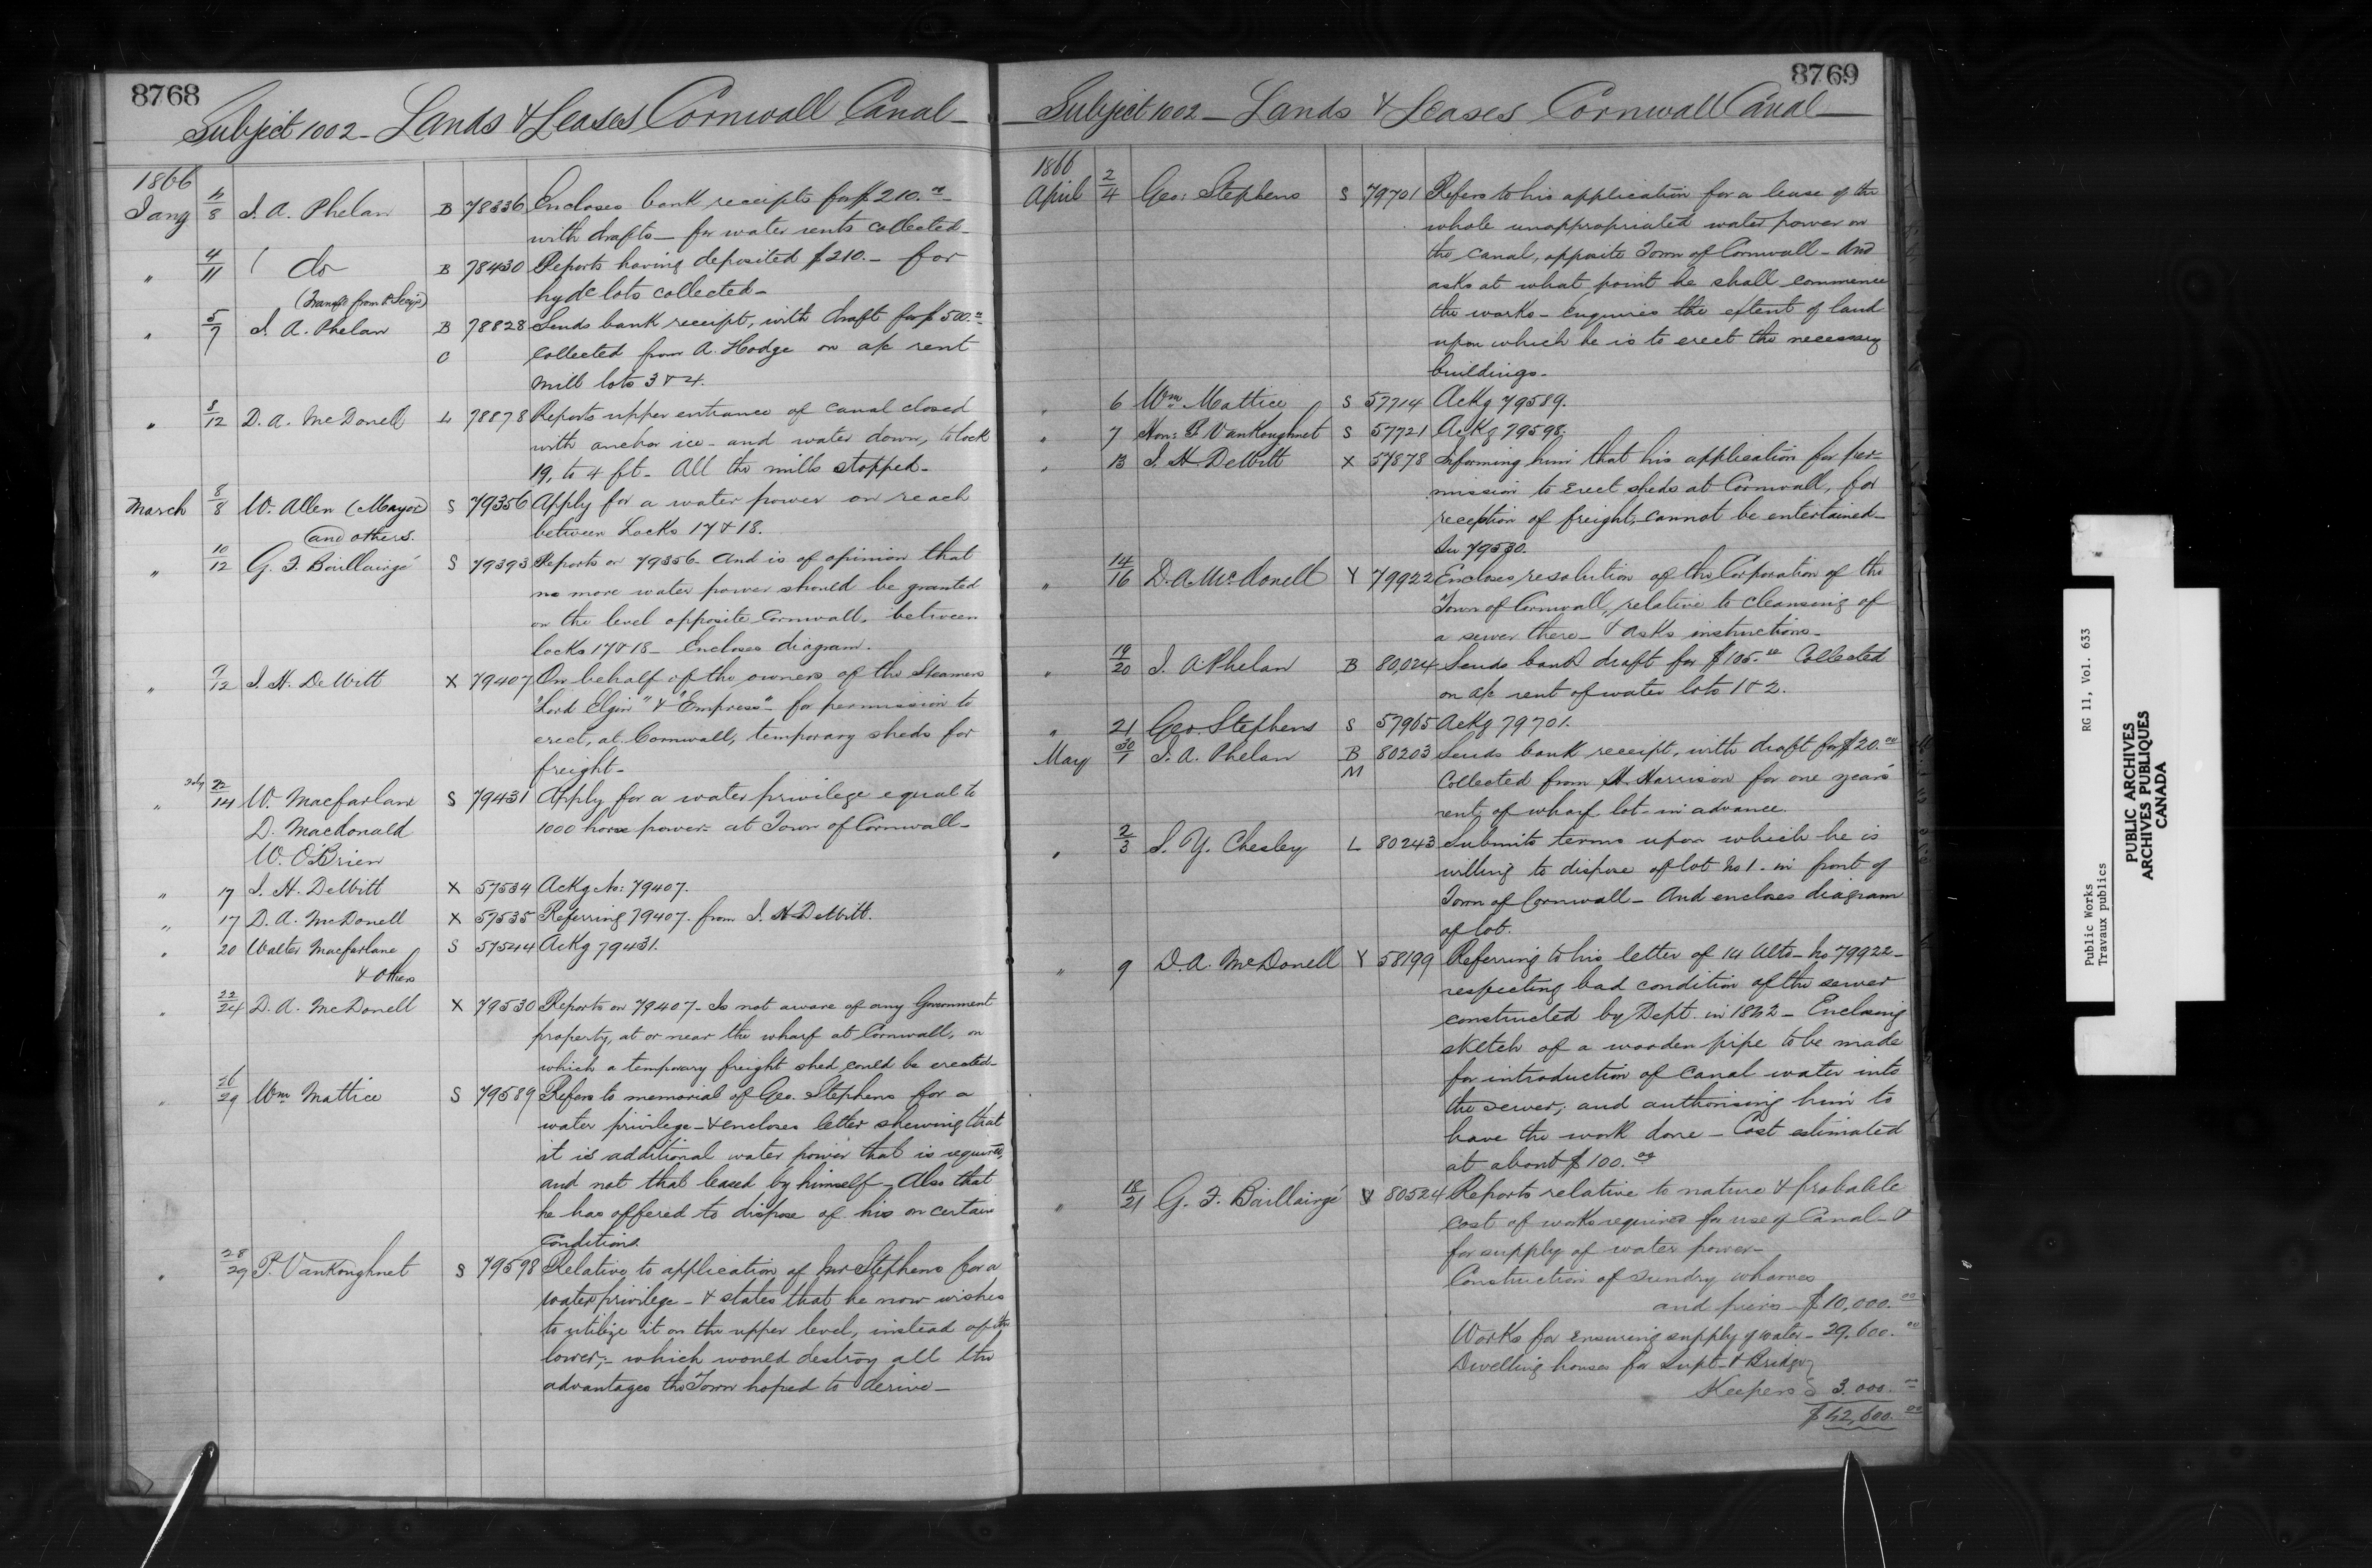 8768
Subject 1002 - Lands & Leases Cornwall Canal -
1866
Jany 4/8 J. A. Phelan B 78336 Encloses bank receipts for $210.00
with drafts - for water rents collected -
" 4/11 do B 78430 Reports having deposited $210. - for
hydc lots collected -
5/7 J. A. Phelan B 78828 Sends bank receipt, with draft for $500.00
C collected from A. Hodge on a/c rent
mill lots 3 & 4.
" 8/12 D. A. McDonell L 78878 Reports upper entrance of canal closed
with anchor ice - and water down, to lock
19, to 4 ft - All the mills stopped -
March 8/8 W. Allen (Mayor) S 79356 Apply for a water power on reach
and others. between Locks 17 & 18.
" 10/12 G. F. Baillairgé S 79393 Reports on 79356 - and is of opinion that
no more water power should be granted
on the level opposite Cornwall, between
locks 17 & 18 - Encloses diagram.
" 9/12 J. H. DeWitt X 79407 On behalf of the owners of the Steamers
"Lord Elgin" & "Empress" - for permission to
erect, at Cornwall, temporary sheds for
freight -
" 14 W. Macfarlane S 79431 Apply for a water privilege equal to
D. Macdonald 1000 horse power - at Town of Cornwall -
W. O'Brien
" 17 J. H. DeWitt X 57534 Ackg No: 79407.
" 17 D. A. McDonell X 57535 Referring 79407. from J. H. DeWitt.
" 20 Walter Macfarlane S 57544 Ackg 79431.
& others
" 22/24 D. A. McDonell X 79530 Reports on 79407 - Is not aware of any Government
property, at or near the wharf at Cornwall, on
which a temporary freight shed could be erected -
" 26/29 Wm Mattice S 79589 Refers to memorial of Geo. Stephens for a
water privilege - & encloses letter shewing that
it is additional water power that is required,
and not that leased by himself - Also that
he has offered to dispose of his on certain
conditions.
" 28/29 P. VanKoughnet S 79598 Relative to application of Mr Stephens for a
water privilege - & states that he now wishes
to utilize it on the upper level, instead of the
lower; - which would destroy all the
advantages the Town hoped to derive -
8769
Subject 1002 - Lands & Leases Cornwall Canal -
1866
April 2/4 Geo: Stephens S 79701 Refers to his application for a lease of the
whole unappropriated water power on
the canal, opposite Town of Cornwall - And
asks at what point he shall commence
the works - Enquires the extent of land
upon which he is to erect the necessary
buildings -
" 6 Wm Mattice S 57714 Ackg 79589.
" 7 Hon: P. VanKoughnet S 57721 Ackg 79598.
" 13 J. H DeWitt X 57878 Informing him that his application for per-
mission to erect sheds at Cornwall, for
reception of freight, cannot be entertained -
In 79530.
" 14/16 D. A. McDonell Y 79922 Encloses resolution of the Corporation of the
Town of Cornwall, relative to cleansing of
a sewer there - & asks instructions -
" 19/20 J. A. Phelan B 80,024 Sends bank draft for $105.00 Collected
on a/c rent of water lots 1 & 2.
" 21 Geo. Stephens S 57965 Ackg 79701.
May 30/1 J. A. Phelan B 80203 Sends bank receipt, with draft for $20.00
M Collected from H. Harrison for one years
rent, of wharf lot - in advance.
" 2/3 S. Y. Chesley L 80243 Submits terms upon which he is
willing to dispose of lot No 1. in front of
Town of Cornwall - And encloses diagram
of lot.
" 9 D. A. McDonell Y 58199 Referring to his letter of 14 Ulto - No 79922 -
respecting bad condition of the sewer
constructed by Dept. in 1842 - Enclosing
sketch of a wooden pipe to be made
for introduction of canal water into
the sewer; and authorising him to
have the work done - Cost estimated
at about $100.00
" 18/21 G. F. Baillairgé 80524 Reports relative to nature & probable
cost of works required for use of Canal - &
for supply of water power -
Construction of sundry wharves
and piers - $10,000.00
Works for ensuring supply of water - 29,600.00
Dwelling houses for Supt - & Bridge
Keepers 3.000.00
$42,600.00
Public Works RG 11, Vol. 633
Travaux publics
PUBLIC ARCHIVES
ARCHIVES PUBLIQUES
CANADA